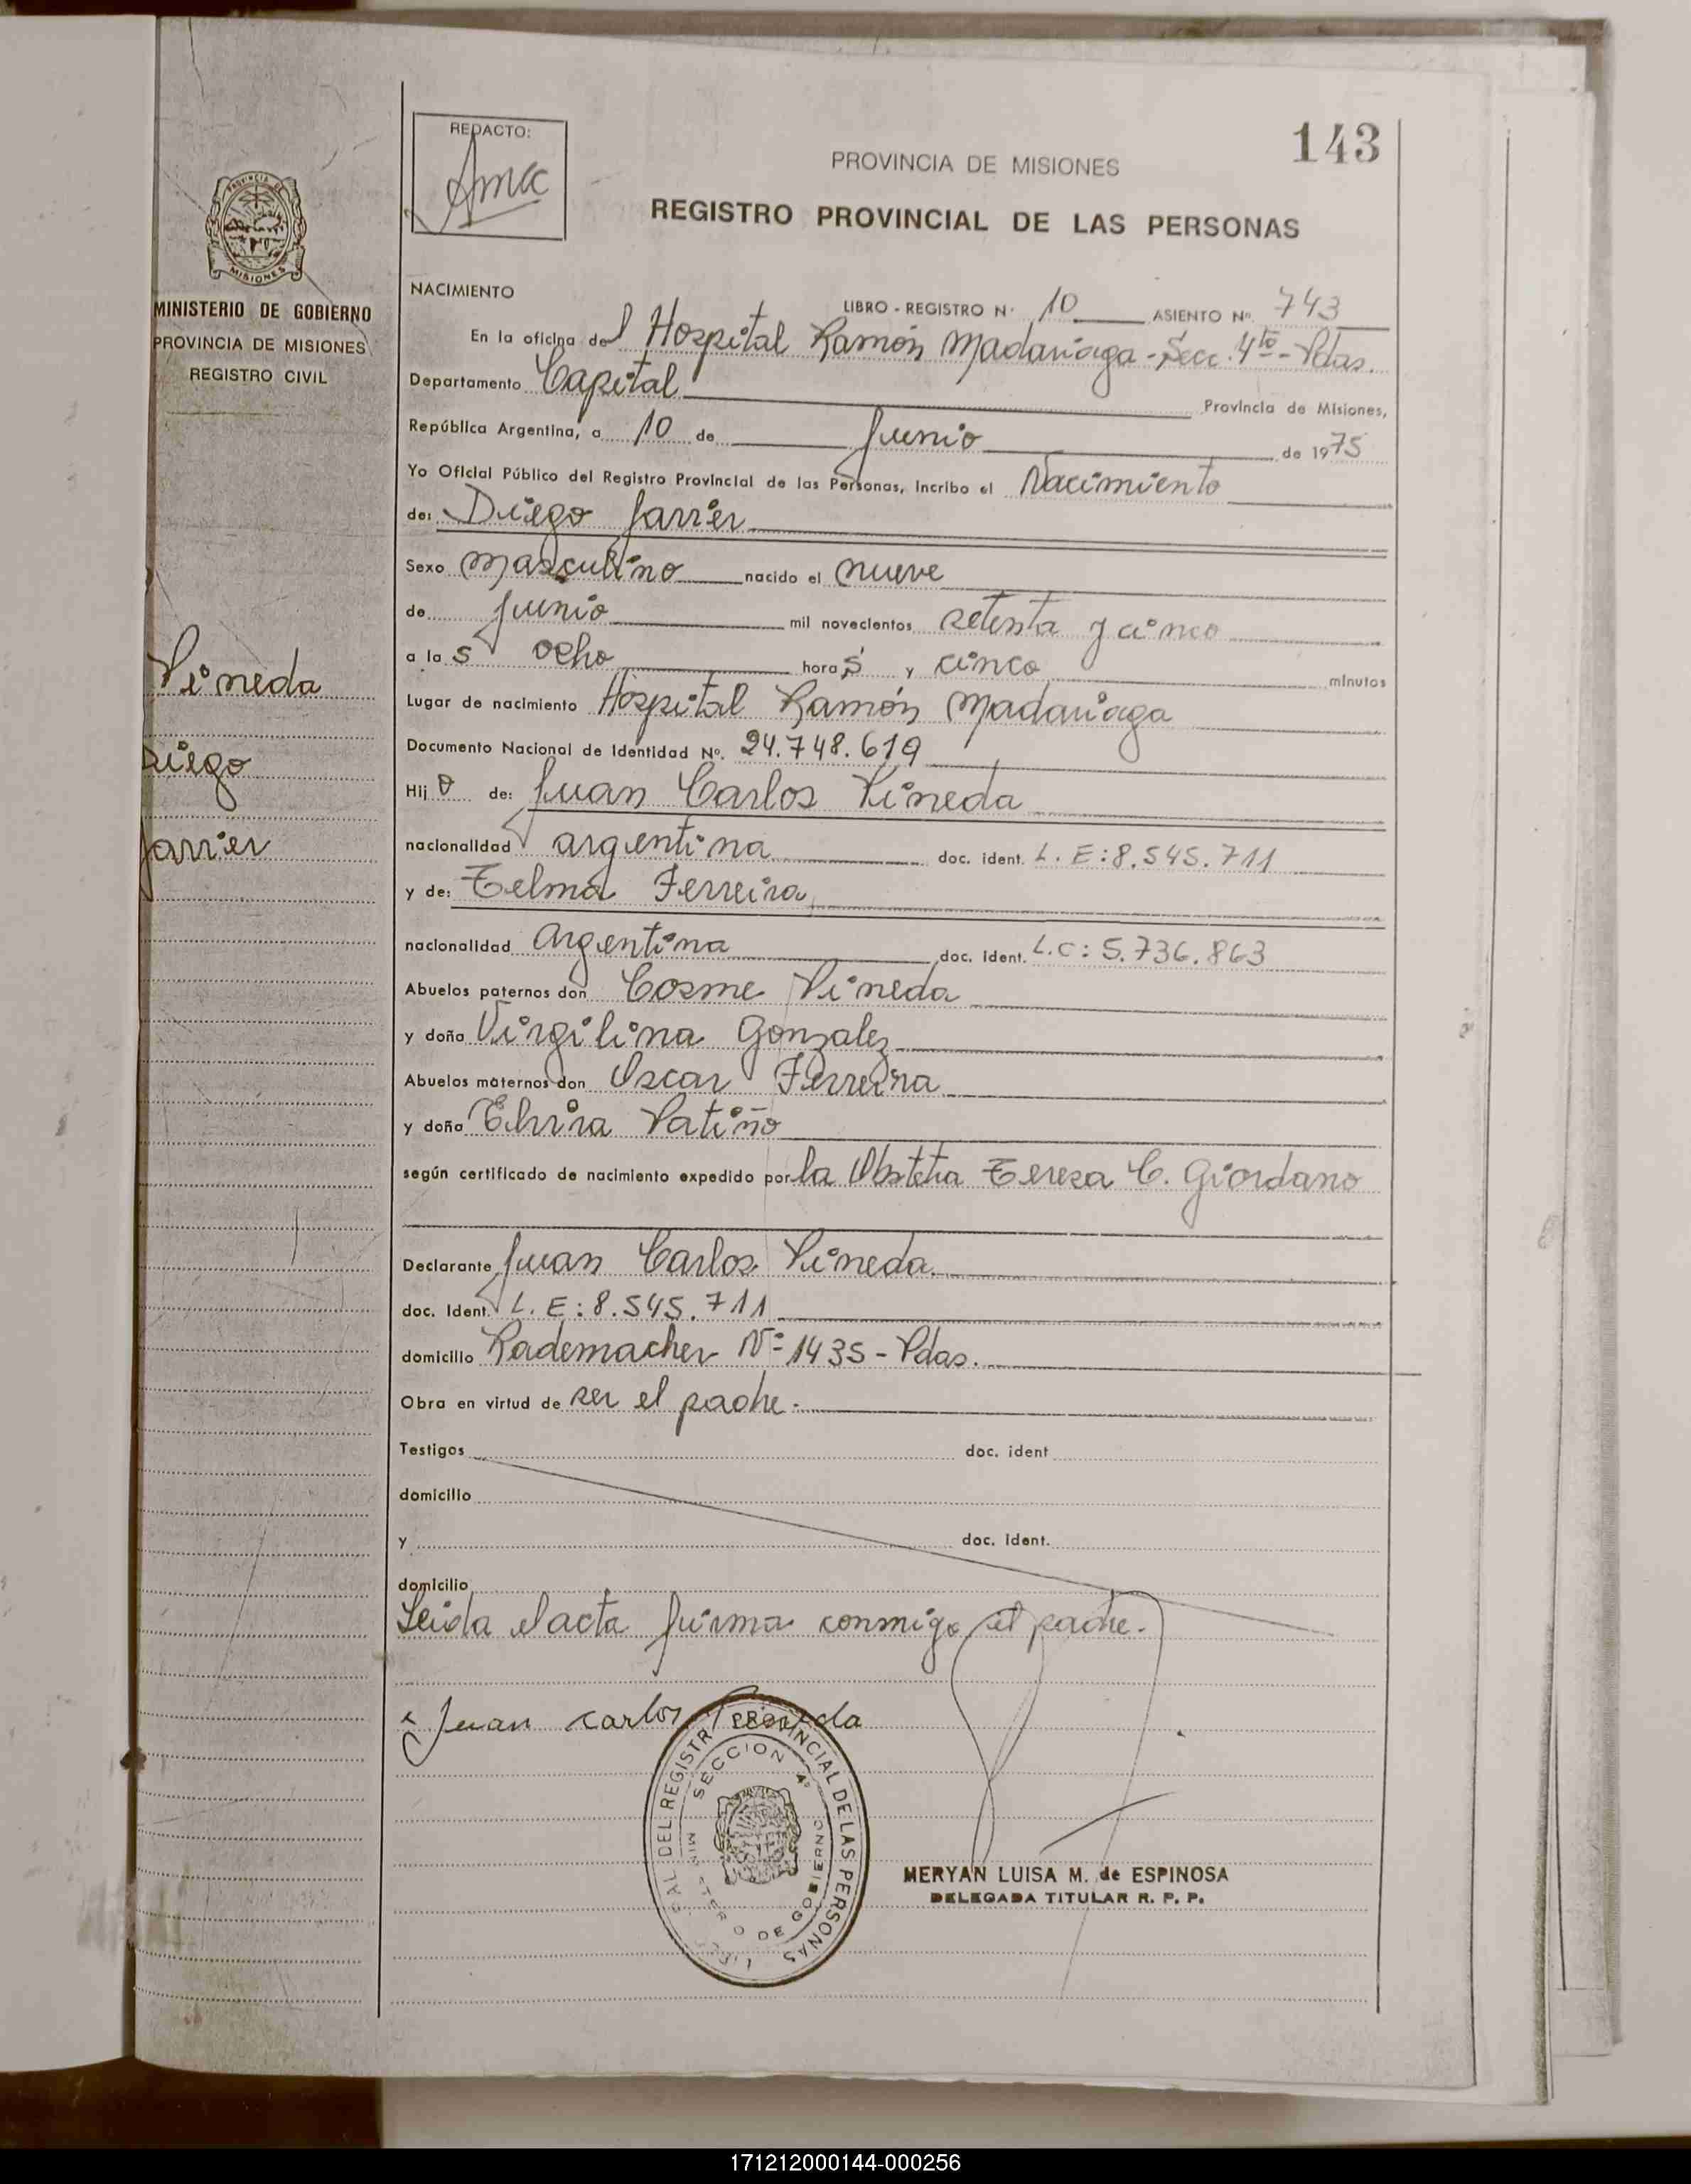 143
REDACTO:
PROVINCIA DE MISIONES
REGISTRO PROVINCIAL DE LAS PERSONAS
PROVINCIA DE
MISIONES
MINISTERIO DE GOBIERNO
PROVINCIA DE MISIONES
REGISTRO CIVIL
NACIMIENTO
LIBRO - REGISTRO Nº 10 ASIENTO Nº. 743
En la oficina del Hospital Ramón Madariaga - Secc. 4to - Pdas.
Departamento Capital Provincia de Misiones,
República Argentina, a 10 de Junio de 1975
Yo Oficial Público del Registro Provincial de las Personas, Incribo el Nacimiento
de: Diego Javier
Sexo masculino nacido el nueve
de junio mil novecientos setenta y cinco
a las ocho horas y cinco minutos
Pineda
Lugar de nacimiento Hospital Ramón Madariaga
Diego
Documento Nacional de Identidad Nº. 24.748.619
Hijo de: Juan Carlos Pineda
Javier
nacionalidad argentina doc. ident. L. E: 8.545.711
y de: Telma Ferreira
nacionalidad argentina doc. ident. L.C: 5.736.863
Abuelos paternos don Cosme Pineda
y doña Virgilina Gonzalez
Abuelos maternos don Oscar Ferreira
y doña Elvira Patiño
según certificado de nacimiento expedido por la Obstetra Teresa C. Giordano
Declarante Juan Carlos Pineda.
doc. Ident. L. E: 8.545.711
domicilio Rademacher Nº 1435 - Pdas.
Obra en virtud de ser el padre.
Testigos doc. ident
domicilio
y doc. ident.
domicilio
Leida el acta firma conmigo el padre.
Juan Carlos Pineda
DEL REGISTRO PROVINCIAL DE LAS PERSONAS
SECCION 4º
MINISTERIO DE GOBIERNO
MERYAN LUISA M. de ESPINOSA
DELEGADA TITULAR R. P. P.
171212000144-000256